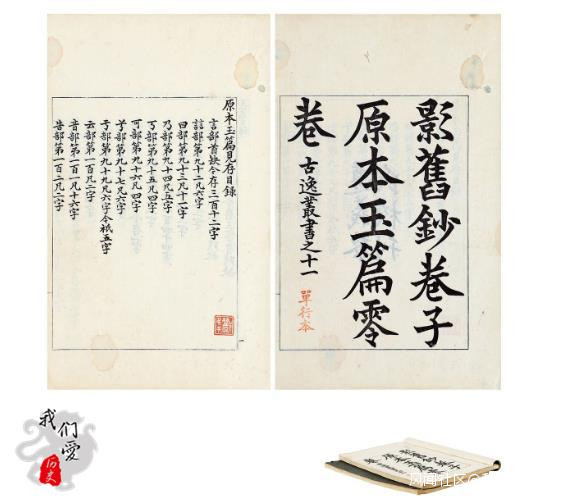 影舊鈔卷子
原本玉篇零
卷 古逸叢書之十一
單行本
原本玉篇見存目錄
言部首缺今存三百十二字
誩部第九十二凡六字
曰部第九十三凡十一字
乃部第九十四凡五字
丂部第九十五凡四字
可部第九十六凡四字
兮部第九十七凡六字
亏部第九十九凡六字今祇五字
云部第一百凡二字
音部第一百一凡十六字
告部第一百二凡二字
我们爱
历史
风闻社区